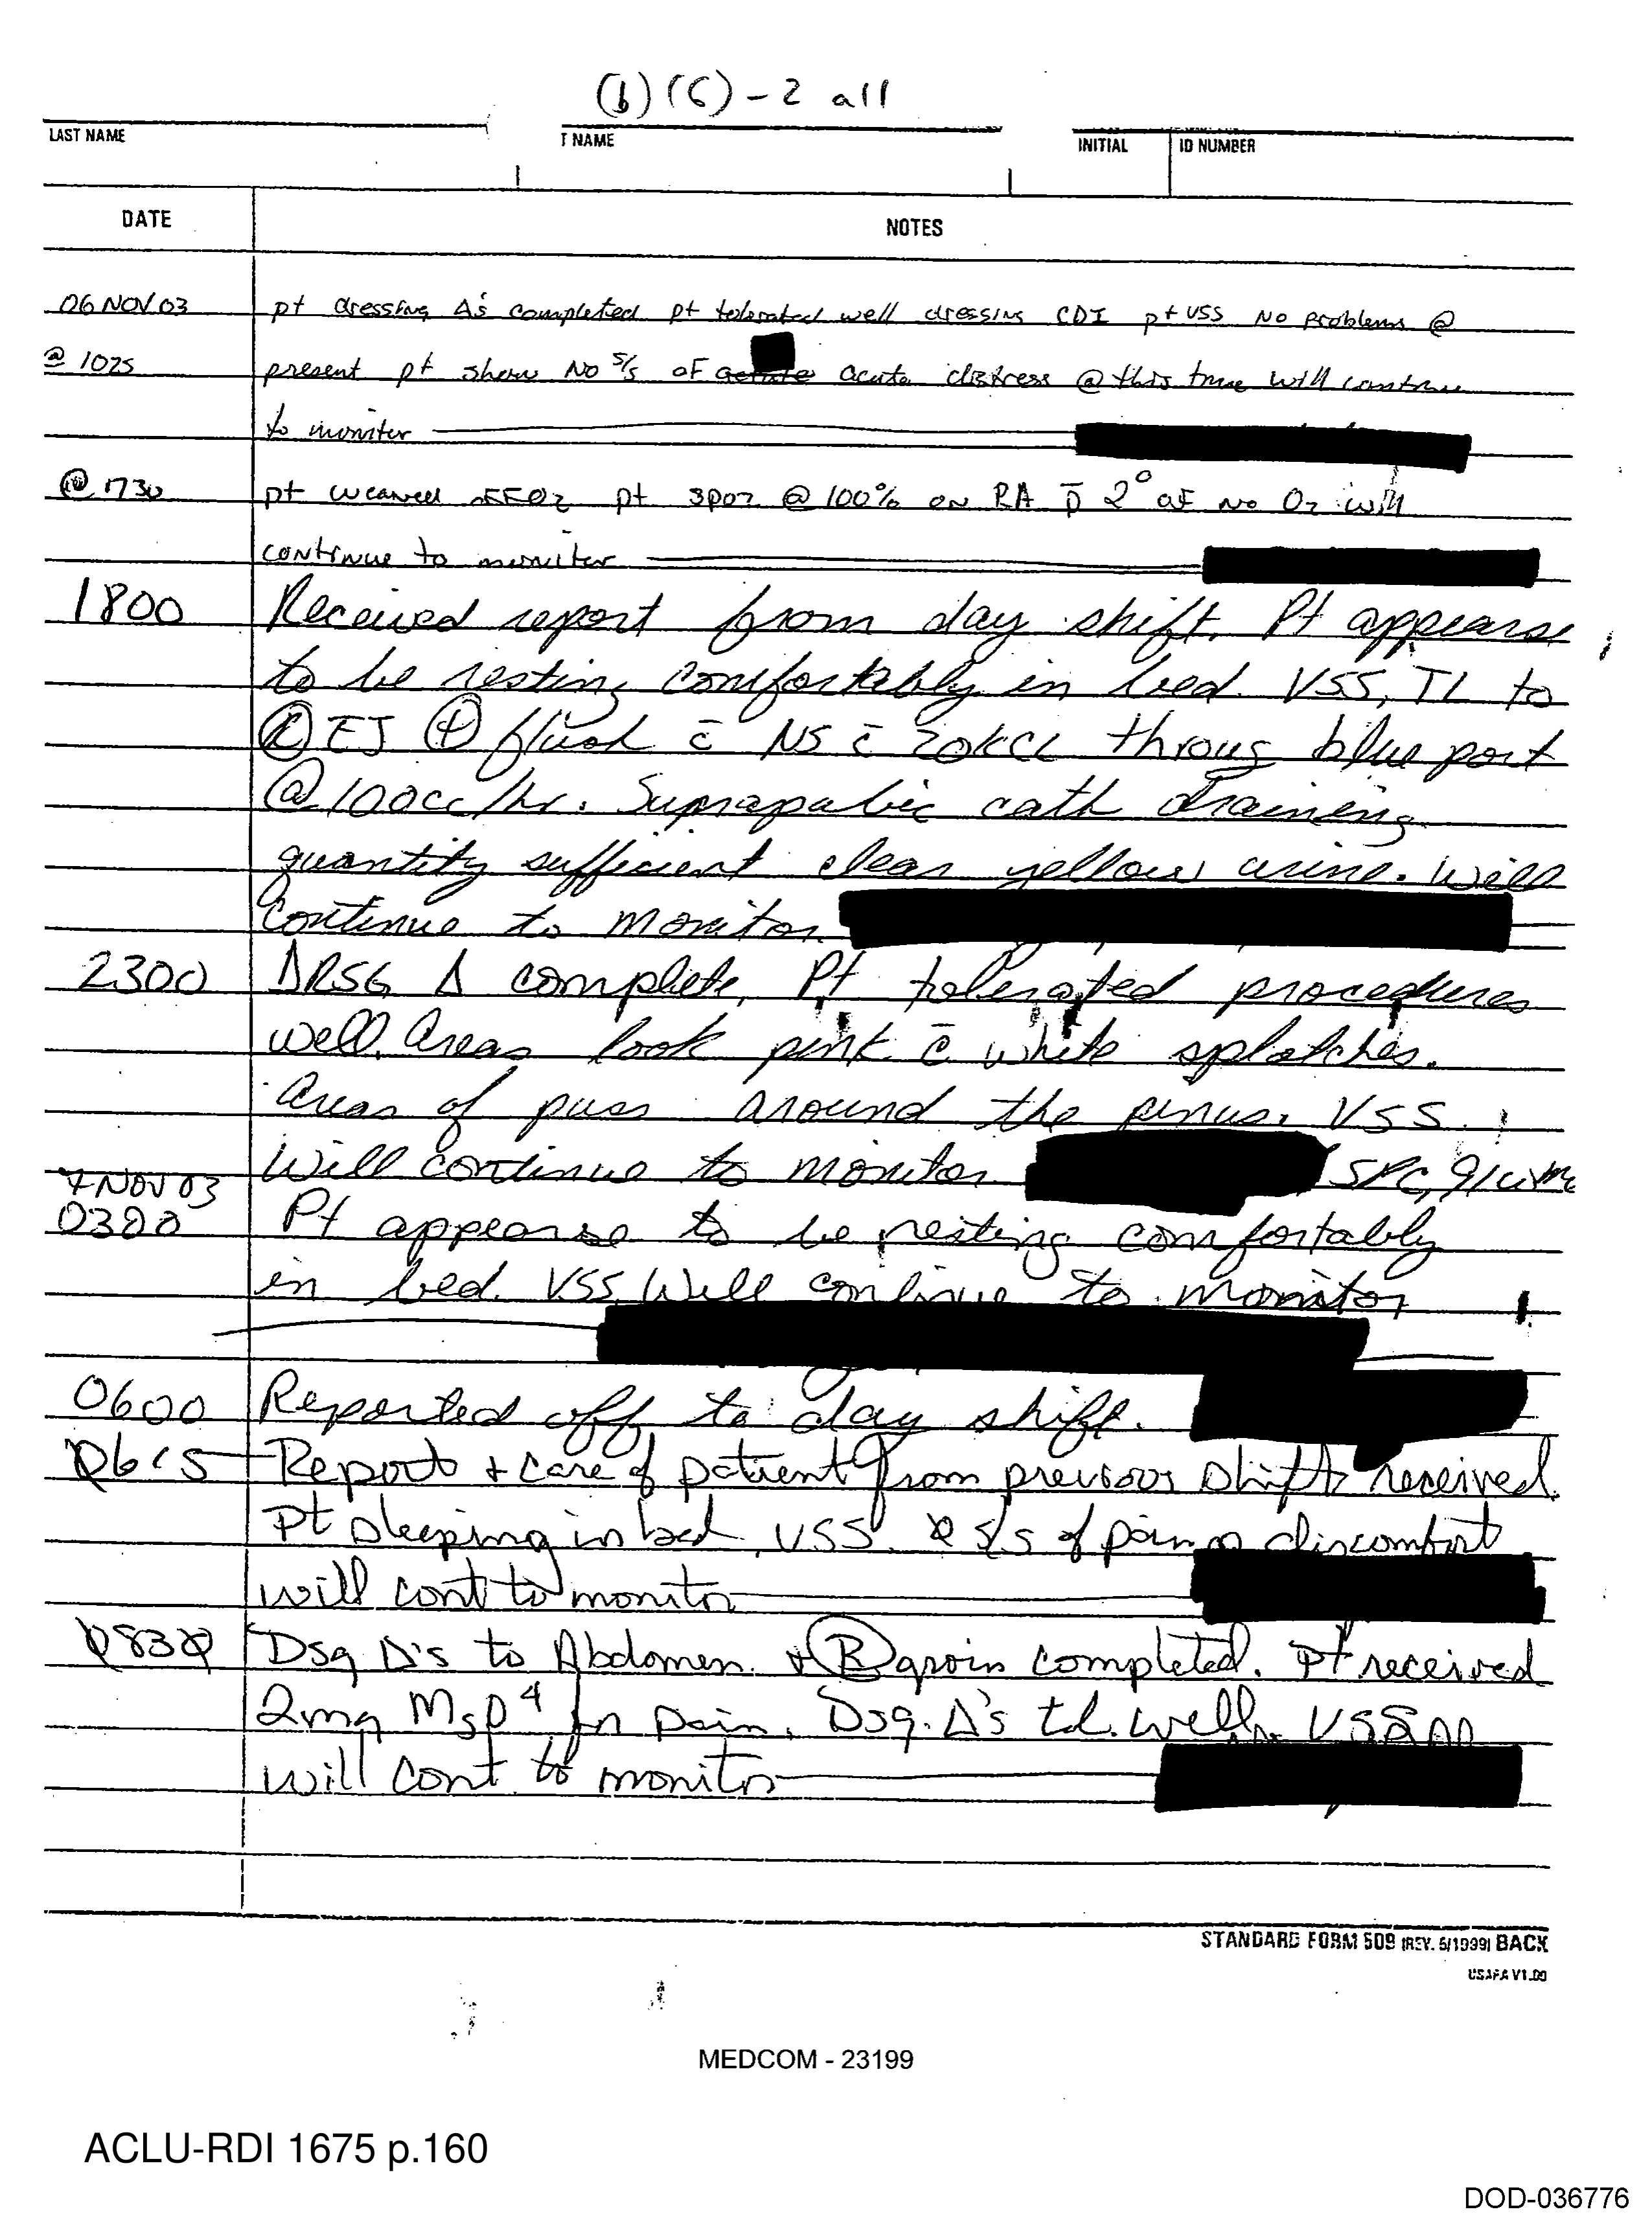 (b)(6)-2 all
LAST NAME T NAME INITIAL ID NUMBER
DATE NOTES
06 NOV 03 pt dressing Δ's completed pt tolerated well dressing CDI pt VSS No problems @
@ 1025 present pt show No s/s of acute distress @ this time will continue
to moniter
@ 1730 pt weaned off O2 pt SPO2 @ 100% on RA p̄ 2° of No O2 will
continue to moniter
1800 Received report from day shift. Pt appears
to be resting comfortably in bed. VSS, TL to
EJ ⊕ flush c̄ NS c̄ 20KCL throug blue port
@ 100cc/hr. Suprapubic cath draining
quantity sufficient clear yellow urine. Will
continue to monitor
2300 DRSG Δ complete, Pt tolerated procedures
well. Areas look pink c̄ white splotches.
Areas of puss around the penus. VSS.
Will continue to monitor SPC,
7 NOV 03
0300 Pt appears to be resting comfortably
in bed. VSS. Will continue to monitor
0600 Reported off to day shift.
0615 Report + care of patient from previous shift received.
Pt sleeping in bed, VSS. Ø s/s of pain or discomfort
will cont to monitor
0830 Dsg Δ's to Abdomen + Ⓡ groin completed. Pt received
2mg MSO4 for pain. Dsg. Δ's tol. well. VSS
will cont. to monitor
STANDARD FORM 509 (REV. 5/1999) BACK
USAPA V1.00
MEDCOM - 23199
ACLU-RDI 1675 p.160
DOD-036776